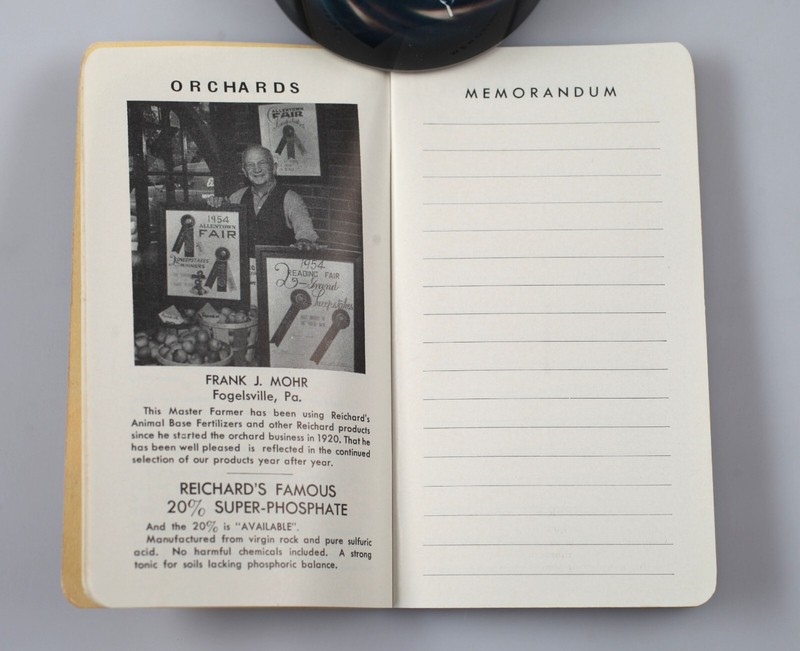 ORCHARDS
ALLENTOWN
FAIR
1954
ALLENTOWN
FAIR
2
SWEEPSTAKES
WINNERS
1954
READING FAIR
2-Grand
Sweepstakes
FRANK J. MOHR
Fogelsville, Pa.
This Master Farmer has been using Reichard's
Animal Base Fertilizers and other Reichard products
since he started the orchard business in 1920. That he
has been well pleased is reflected in the continued
selection of our products year after year.
REICHARD'S FAMOUS
20% SUPER-PHOSPHATE
And the 20% is "AVAILABLE".
Manufactured from virgin rock and pure sulfuric
acid. No harmful chemicals included. A strong
tonic for soils lacking phosphoric balance.
MEMORANDUM